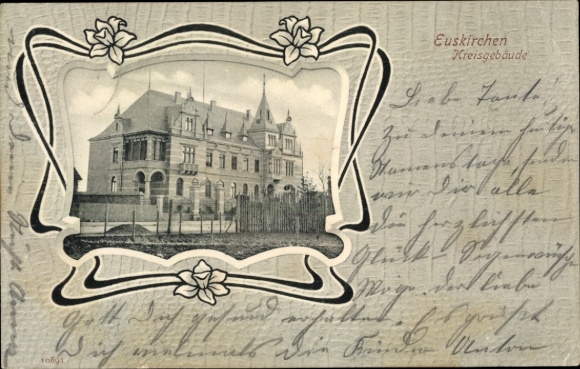 Euskirchen
Kreisgebäude
Liebe Tante!
Zu Deinem heutigen
Namenstage senden
wir Dir alle
die herzlichsten
Glück- Segenswünsche
Möge der liebe
Gott Dich gesund erhalten. Es grüßt
Dich vielmals die Kinder Anton
10891